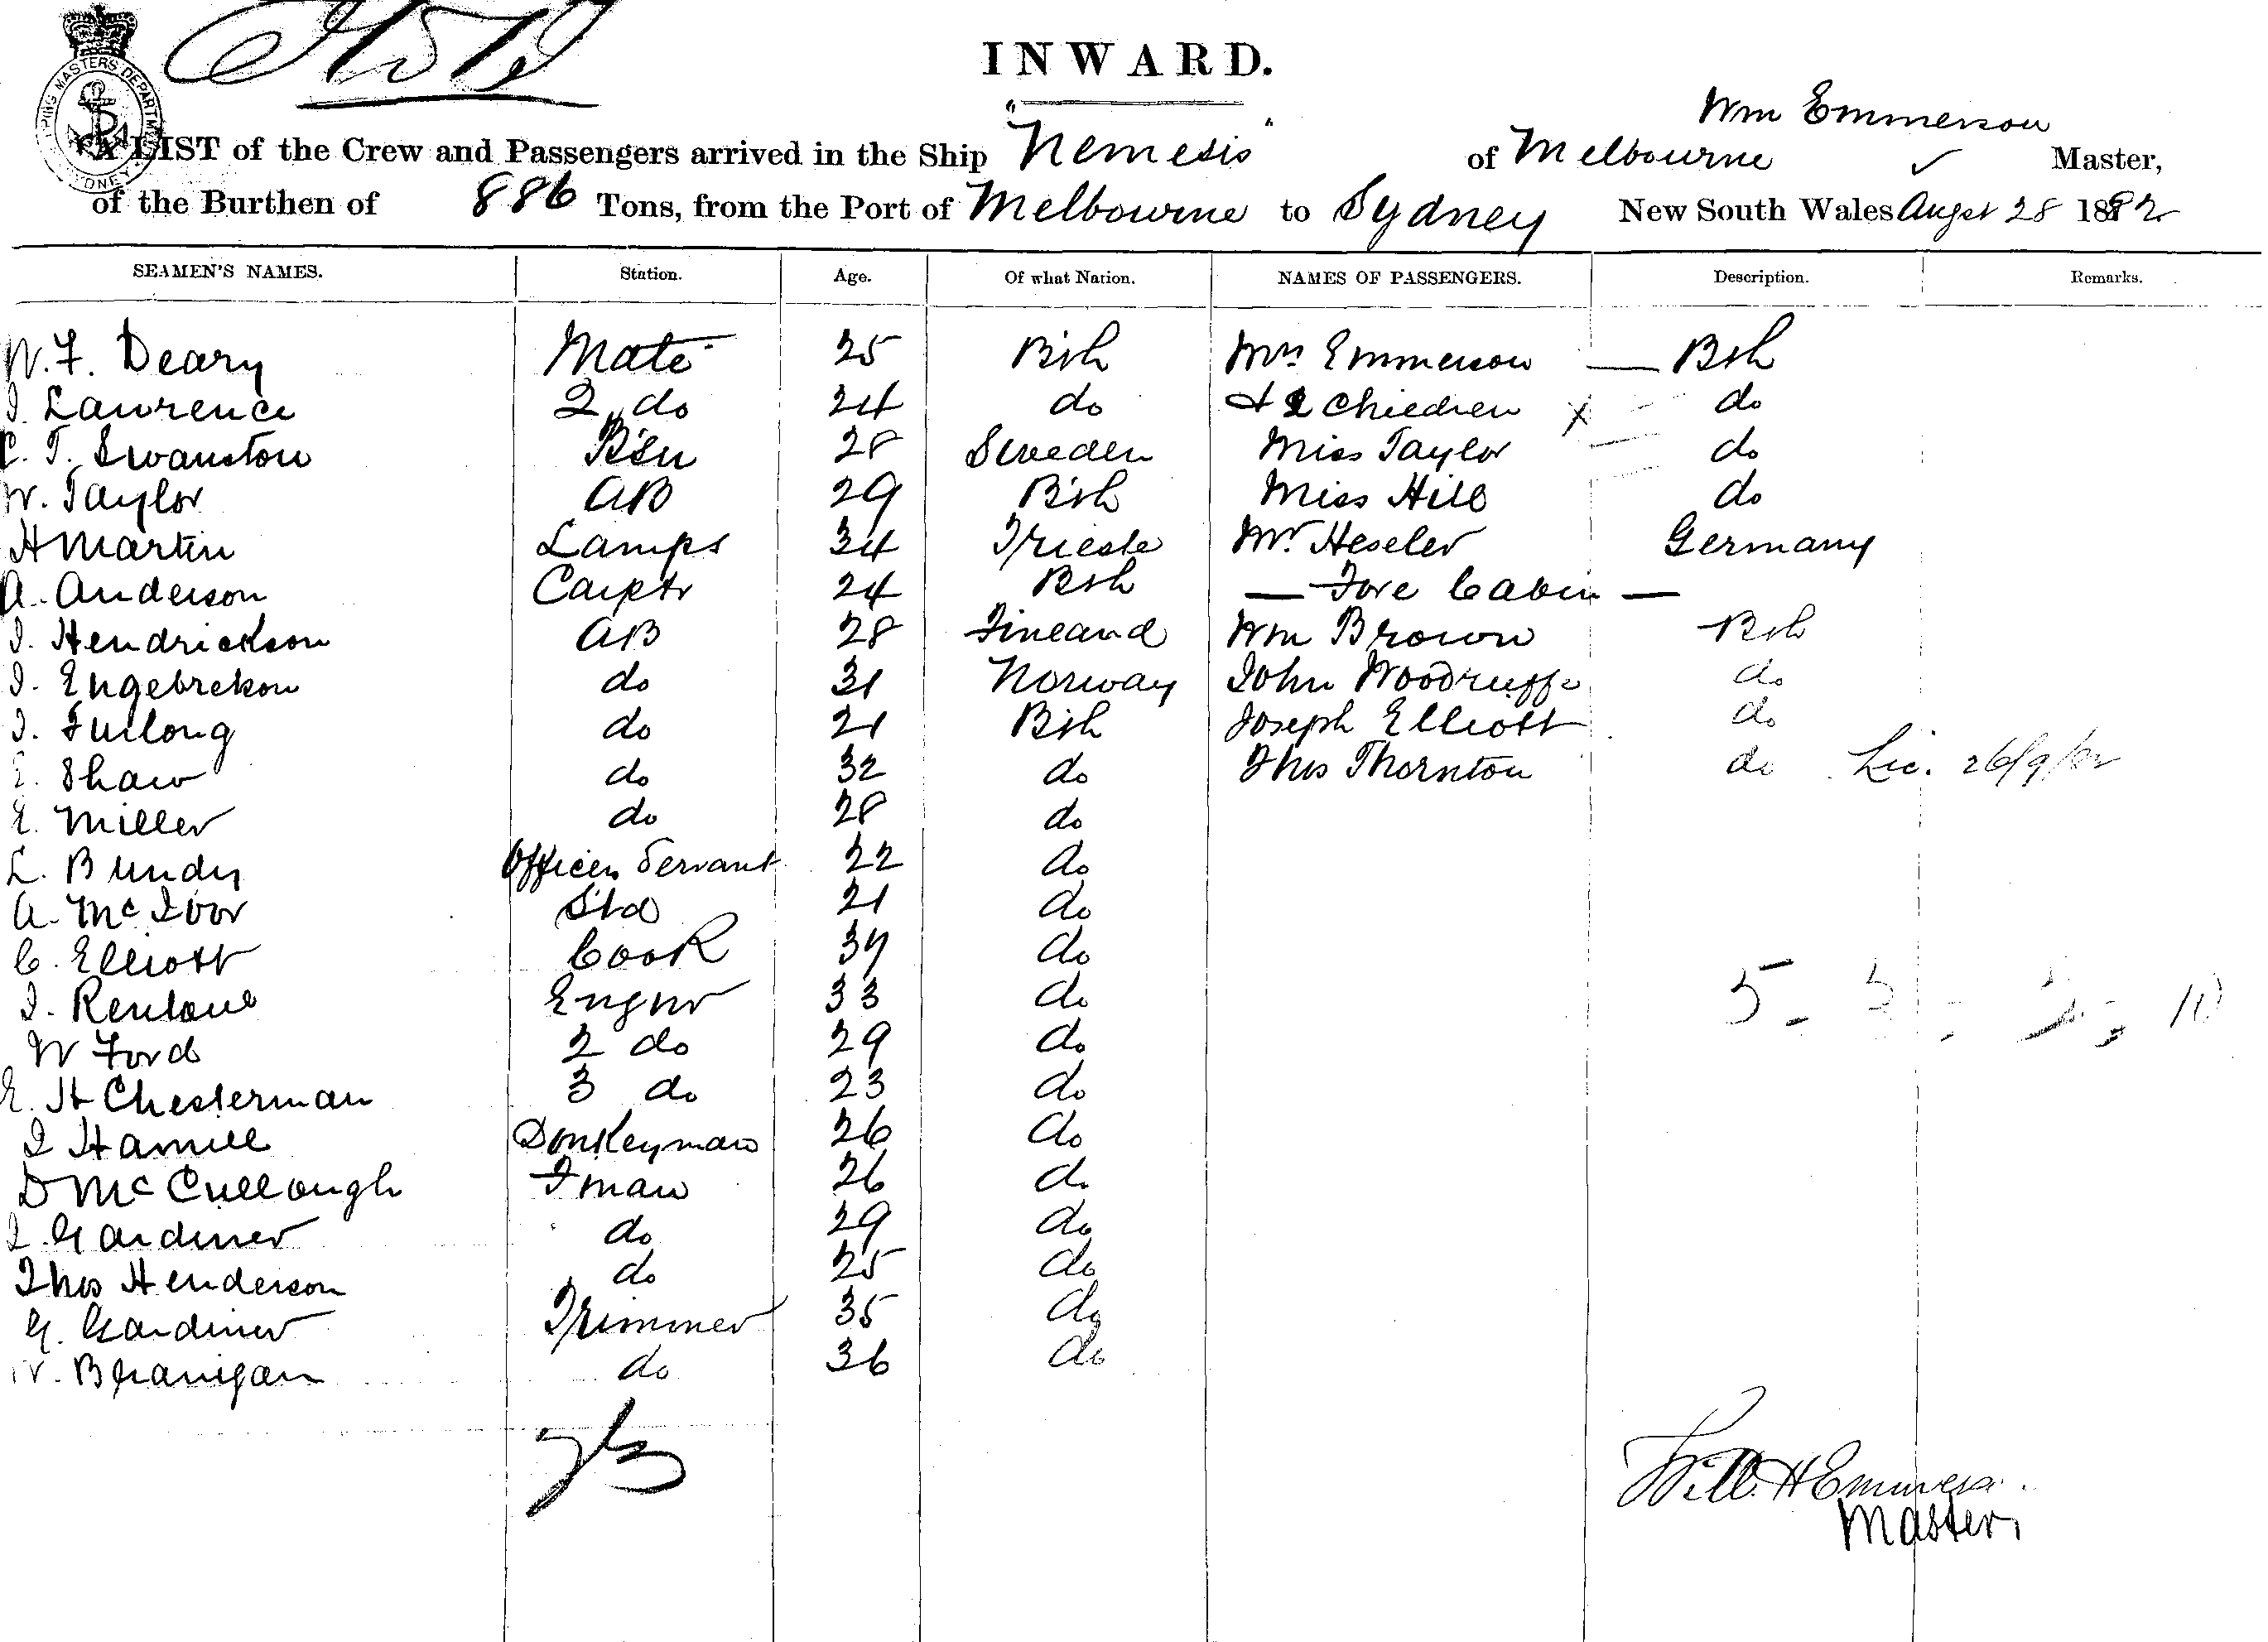 INWARD.
Wm Emmerson
A LIST of the Crew and Passengers arrived in the Ship "Nemesis" of Melbourne Master,
of the Burthen of 886 Tons, from the Port of Melbourne to Sydney New South Wales Augst 28 1882
SEAMEN'S NAMES. Station. Age. Of what Nation. NAMES OF PASSENGERS. Description. Remarks.
W. F. Deary Mate 25 Bsh Mrs Emmerson — Bsh
J. Lawrence 2 do 24 do & 2 Children x do
C. T. Swanston B'sn 28 Sweden Miss Taylor do
W. Taylor AB 29 Bsh Miss Hill do
H Martin Lamps 34 Trieste Mr. Heseler Germany
A. Anderson Carptr 24 Bsh — Fore Cabin —
J. Hendrickson AB 28 Finland Wm Brown Bsh
J. Engebrekson do 31 Norway John Woodruffe do
J. Furlong do 21 Bsh Joseph Elliott do
E. Shaw do 32 do Thos Thornton do Lic. 26/9/82
E. Miller do 28 do
L. Bundy Officers Servant 22 do
A. McIvor Std 21 do
C. Elliott Cook 37 do
J. Engnr 33 do
W Ford 2 do 29 do
E. H Chesterman 3 do 23 do
J Hamill Donkeyman 26 do
D McCullough Fman 26 do
J. Gardiner do 29 do
Thos Henderson do 25 do
G. Gardiner Trimmer 35 do
W. Branigan do 36 do
Will. H Emmerson
Master